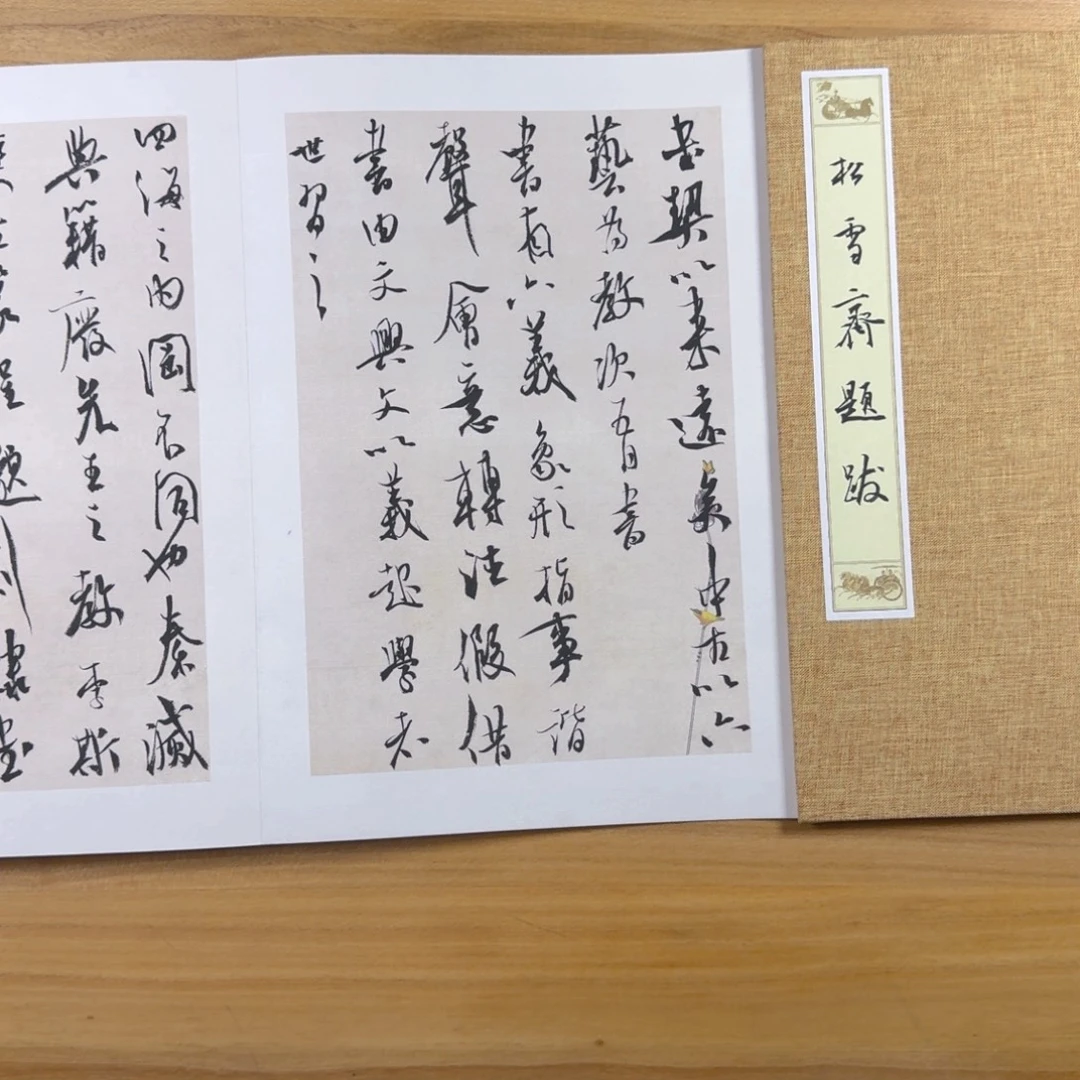 松雪齋題跋
書契以來遠矣中古以六
藝為教次五曰書
書有六義象形指事諧
聲會意轉注假借
書由文興文以義起學者
世習之
四海之內罔不同也秦滅
典籍廢先王之教李斯
程邈